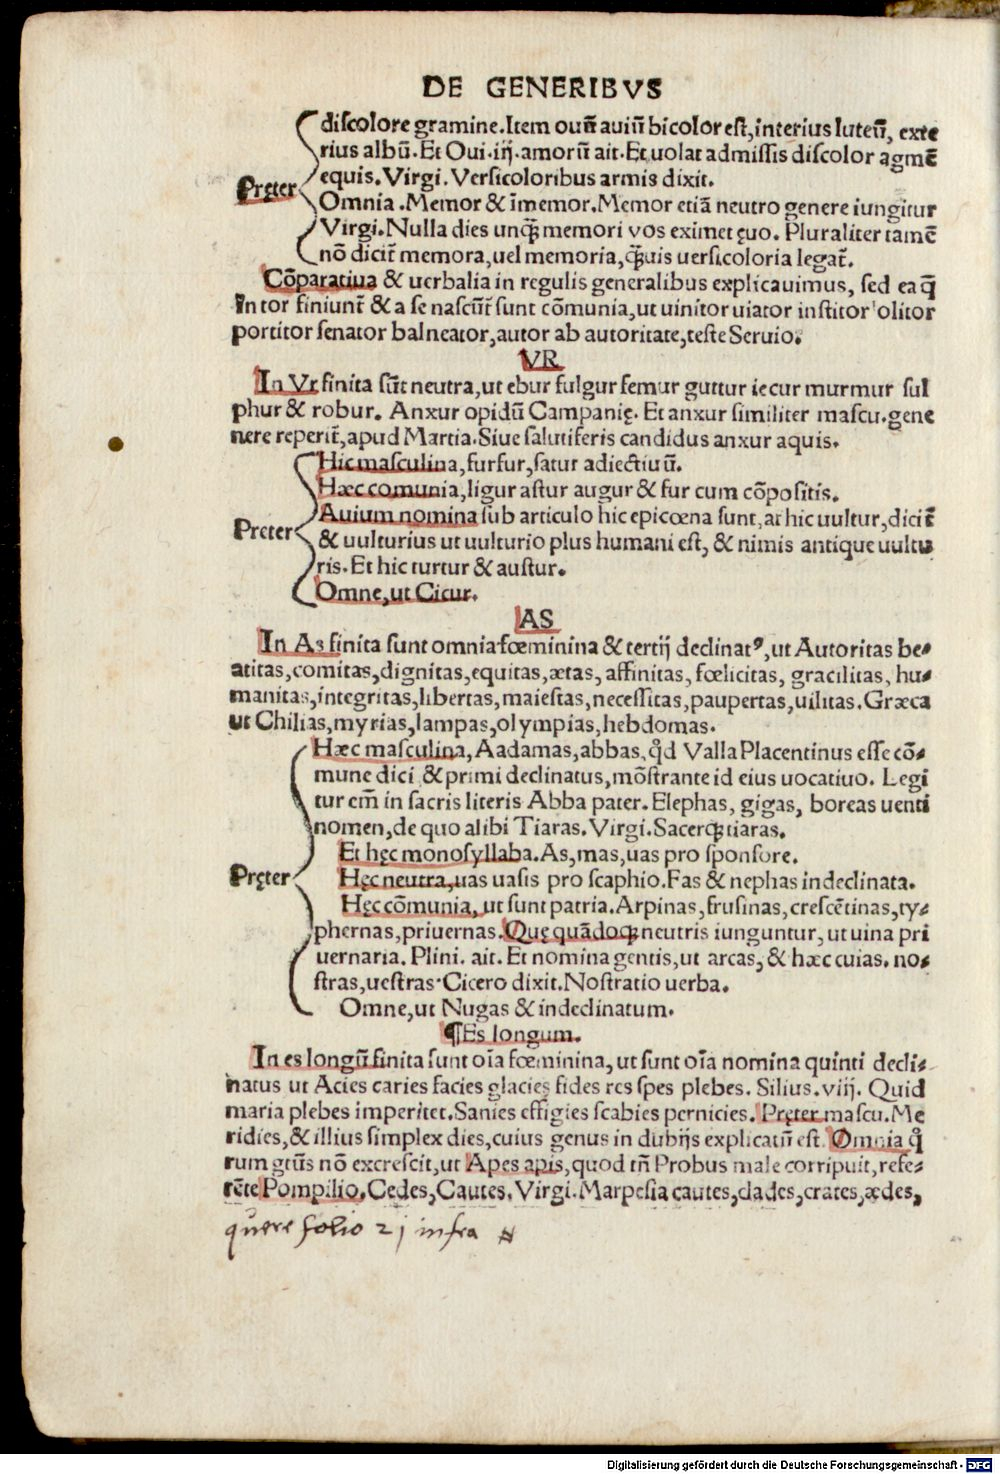 DE GENERIBVS
discolore gramine. Item ouū auiū bicolor est, interius luteū, exte
rius albū. Et Oui. iij. amorū ait. Et uolat admissis discolor agmē
equis. Virgi. Versicoloribus armis dixit.
Pręter
Omnia. Memor & īmemor. Memor etiā neutro genere iungitur
Virgi. Nulla dies unꝗ̄ memori vos eximet ęuo. Pluraliter tamē
nō dicit̄ memora, uel memoria, ꝗ̄uis uersicoloria legat̄.
Cōparatiua & uerbalia in regulis generalibus explicauimus, sed ea ꝗ̄
In tor finiunt̄ & a se nascūt̄ sunt cōmunia, ut uinitor uiator institor olitor
portitor senator balneator, autor ab autoritate, teste Seruio.
VR
In Vr finita sūt neutra, ut ebur fulgur femur guttur iecur murmur sul
phur & robur. Anxur opidū Campanię. Et anxur similiter mascu. gene
nere reperit̄, apud Martia. Siue salutiferis candidus anxur aquis.
Hic masculina, furfur, satur adiectiuū.
Hæc comunia, ligur astur augur & fur cum cōpositis.
Preter
Auium nomina sub articulo hic epicœna sunt, at hic uultur, dicit̄
& uulturius ut uulturio plus humani est, & nimis antique uultu
ris. Et hic turtur & austur.
Omne, ut Cicur.
AS
In As finita sunt omnia fœminina & tertij declinatꝰ, ut Autoritas be⸗
atitas, comitas, dignitas, equitas, ætas, affinitas, fœlicitas, gracilitas, hu⸗
manitas, integritas, libertas, maiestas, necessitas, paupertas, uilitas. Græca
ut Chilias, myrias, lampas, olympias, hebdomas.
Hæc masculina, Aadamas, abbas, qd̄ Valla Placentinus esse cō⸗
mune dici & primi declinatus, mōstrante id eius uocatiuo. Legi
tur em̄ in sacris literis Abba pater. Elephas, gigas, boreas uenti
nomen, de quo alibi Tiaras. Virgi. Sacerqꝫ tiaras.
Et hęc monosyllaba. As, mas, uas pro sponsore.
Pręter
Hęc neutra, uas uasis pro scaphio. Fas & nephas indeclinata.
Hęc cōmunia, ut sunt patria. Arpinas, frusinas, crescētinas, ty⸗
phernas, priuernas. Quę quādoqꝫ neutris iunguntur, ut uina pri
uernaria. Plini. ait. Et nomina gentis, ut arcas, & hæc cuias. no⸗
stras, uestras. Cicero dixit. Nostratio uerba.
Omne, ut Nugas & indeclinatum.
¶Es longum.
In es longū finita sunt oīa fœminina, ut sunt oīa nomina quinti decli⸗
natus ut Acies caries facies glacies fides res spes plebes. Silius. viij. Quid
maria plebes imperitet. Sanies effigies scabies pernicies. Pręter mascu. Me
ridies, & illius simplex dies, cuius genus in dubijs explicatū est. Omnia ꝗ
rum gtūs nō excrescit, ut Apes apis, quod tn̄ Probus male corripuit, refe⸗
rēte Pompilio. Cedes, Cautes. Virgi. Marpesia cautes, clades, crates, ædes,
quere folio 21 infra #
Digitalisierung gefördert durch die Deutsche Forschungsgemeinschaft - DFG